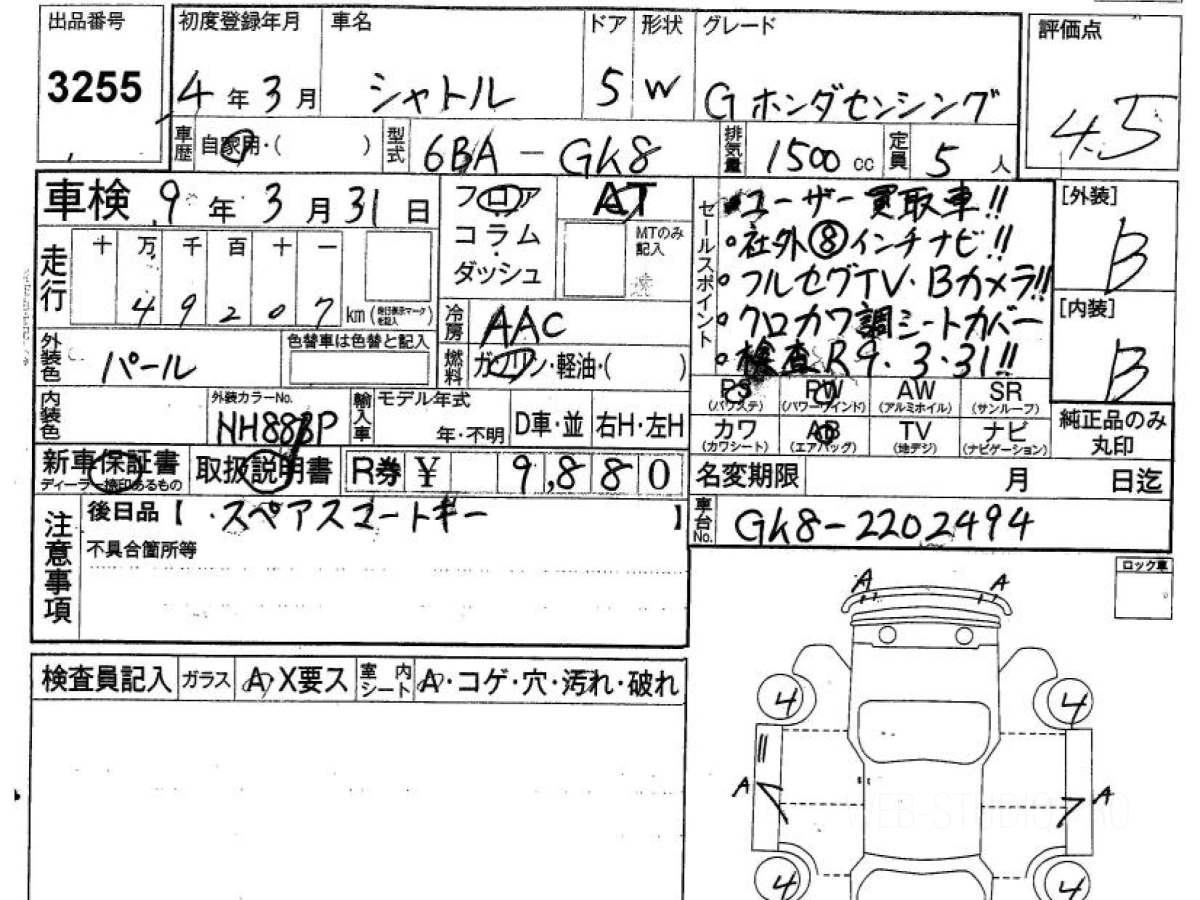 出品番号 初度登録年月 車名 ドア 形状 グレード 評価点
3255 4年3月 シャトル 5 W Gホンダセンシング 4.5
車歴 自家用・( ) 型式 6BA-GK8 排気量 1500cc 定員 5人
車検 9年3月31日 フロア AT セールスポイント ユーザー買取車!! [外装]
コラム MTのみ記入 ・社外⑧インチナビ!! B
走行 十万千百十一 ダッシュ ・フルセグTV・Bカメラ!!
49207 km 冷房 AAC ・クロカワ調シートカバー [内装]
外装色 パール 色替車は色替と記入 燃料 ガソリン・軽油・( ) ・検査R9.3.31!! B
PS (パワステ) PW (パワーウインド) AW (アルミホイル) SR (サンルーフ)
内装色 外装カラーNo. NH883P 輸入車 モデル年式 年・不明 D車・並 右H・左H カワ (カワシート) AB (エアバッグ) TV (地デジ) ナビ (ナビゲーション) 純正品のみ丸印
新車保証書 ディーラー捺印あるもの 取扱説明書 R券 ¥ 9,880 名変期限 月 日迄
注意事項 後日品【・スペアスマートキー 】 車台No. GK8-2202494
不具合箇所等
ロック車
A A
検査員記入 ガラス A X要ス 室内シート A・コゲ・穴・汚れ・破れ
4 4
A A
WEB-STUDIO.PRO
4 4